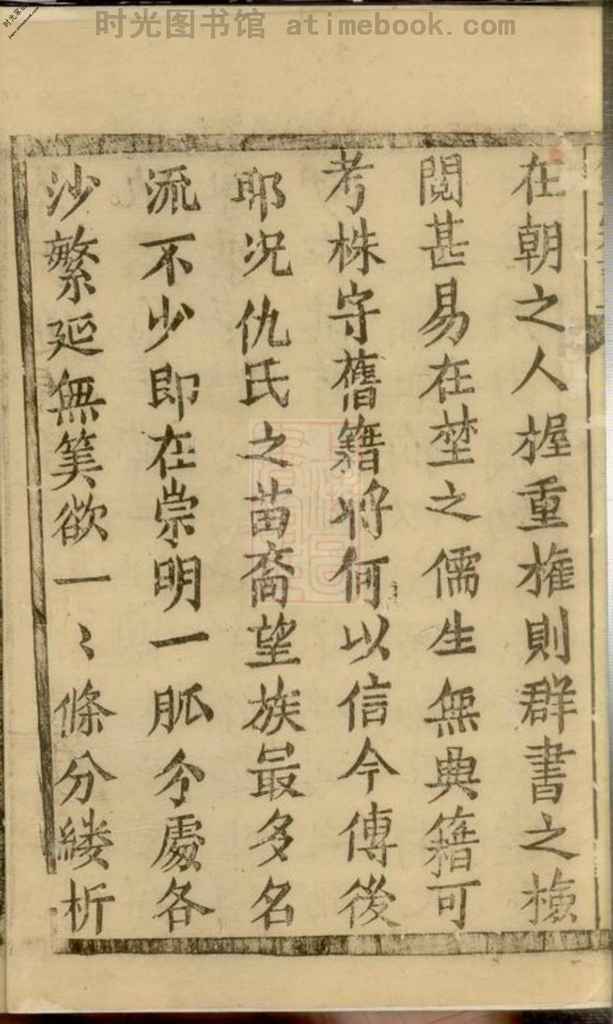 时光图书馆 atimebook.com
在朝之人握重權則群書之撿
閱甚易在埜之儒生無典籍可
考株守舊籍将何以信今傳後
耶况仇氏之苗裔望族最多名
流不少即在崇明一脈分處各
沙繁延無筭欲一〻條分縷析